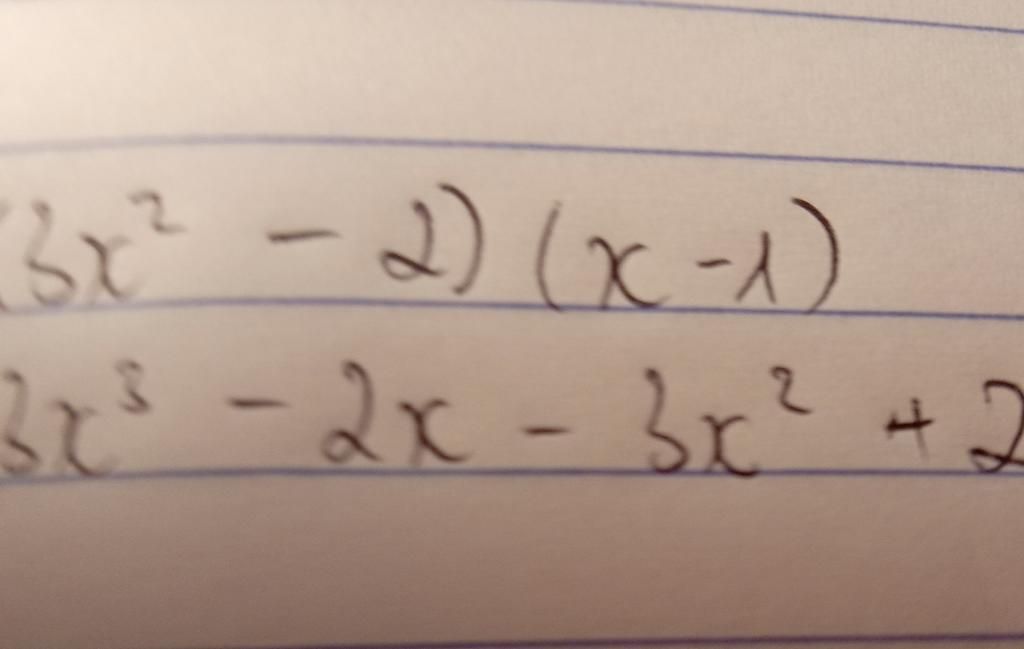 (3x² - 2) (x - 1)
3x³ - 2x - 3x² + 2